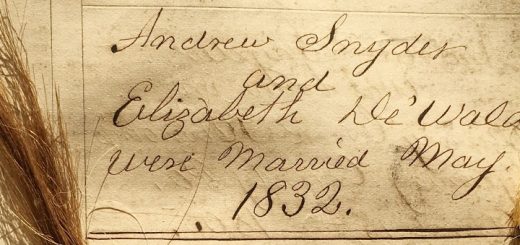 Andrew Snyder
and
Elizabeth De'Wald
were Married May.
1832.